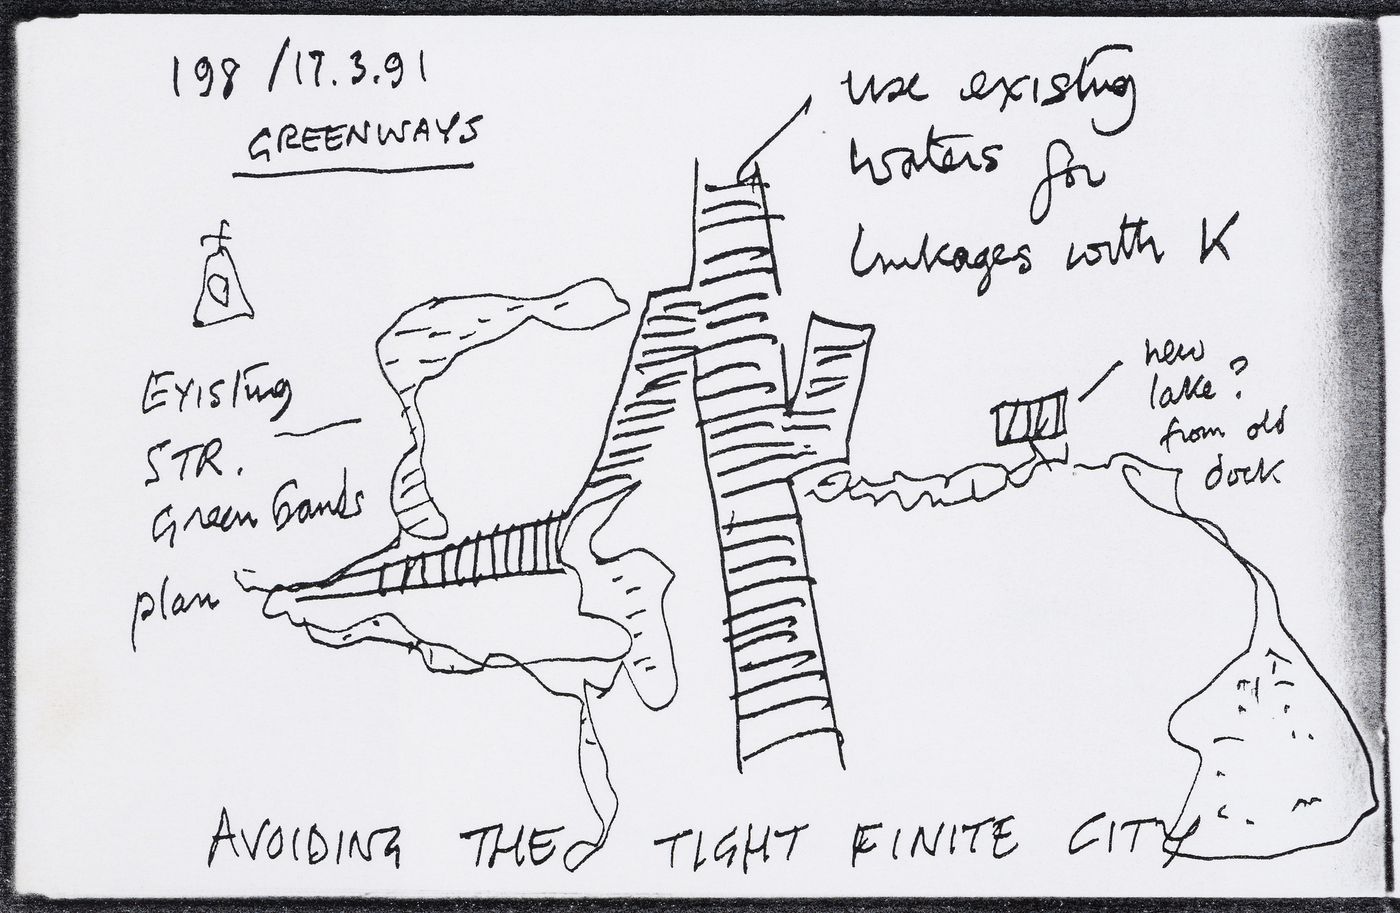 198 / 17.3.91
GREENWAYS
use existing
waters for
linkages with K
new
lake?
from old
dock
Existing
STR.
Green bands
plan
AVOIDING THE TIGHT FINITE CITY